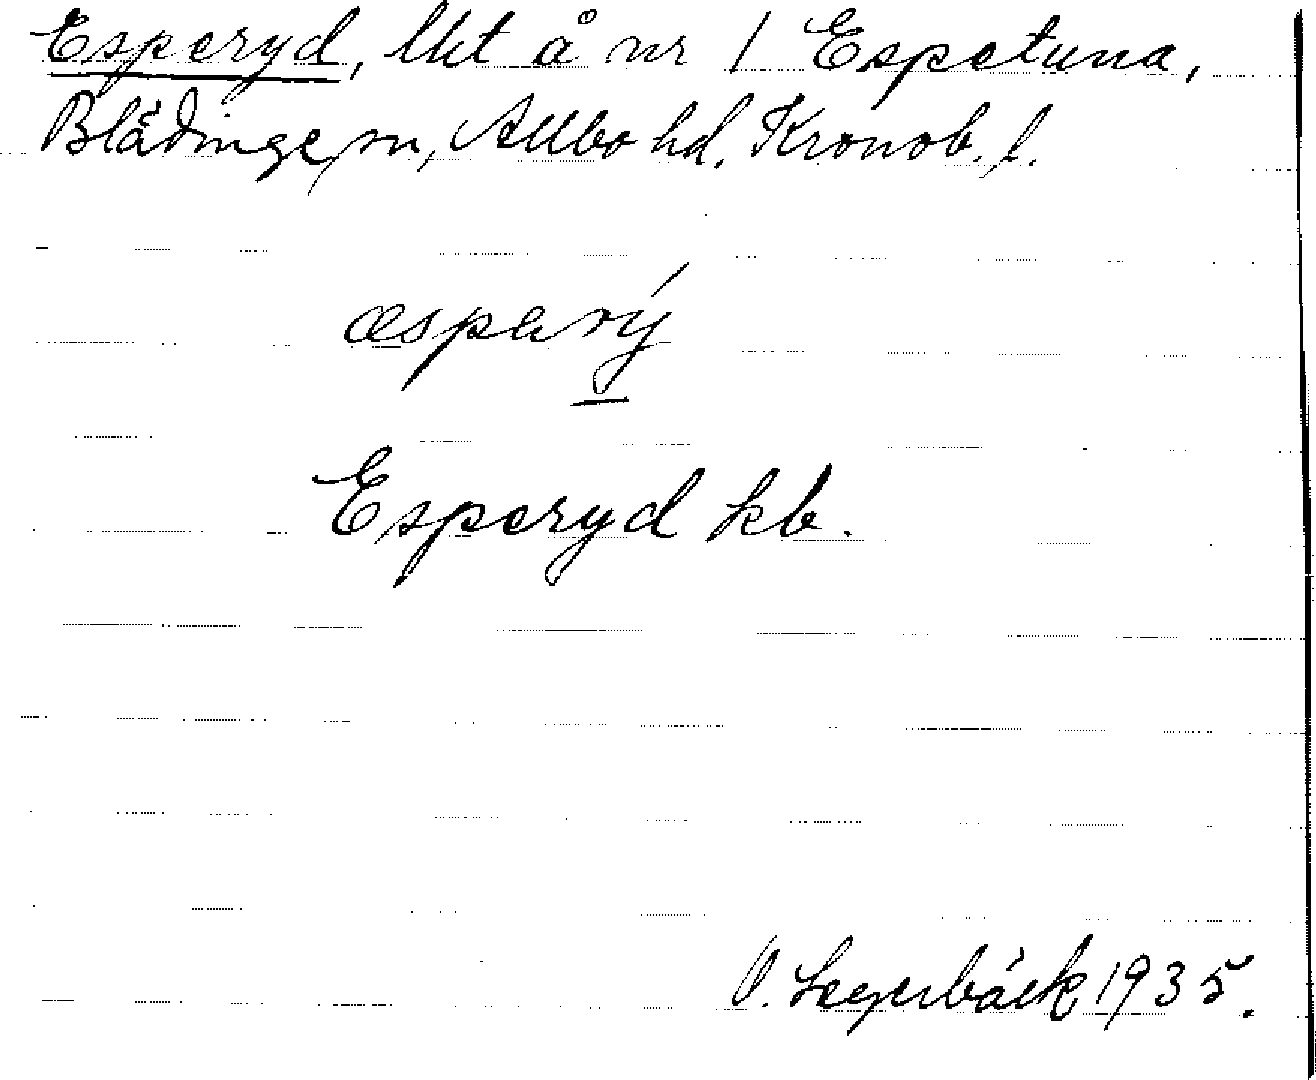 Esperyd, lht å nr 1 Espetuna,
Blädinge sn, Allbo hd, Kronob. l.
æsparý
Esperyd kb.
O. Segerbäck 1935.